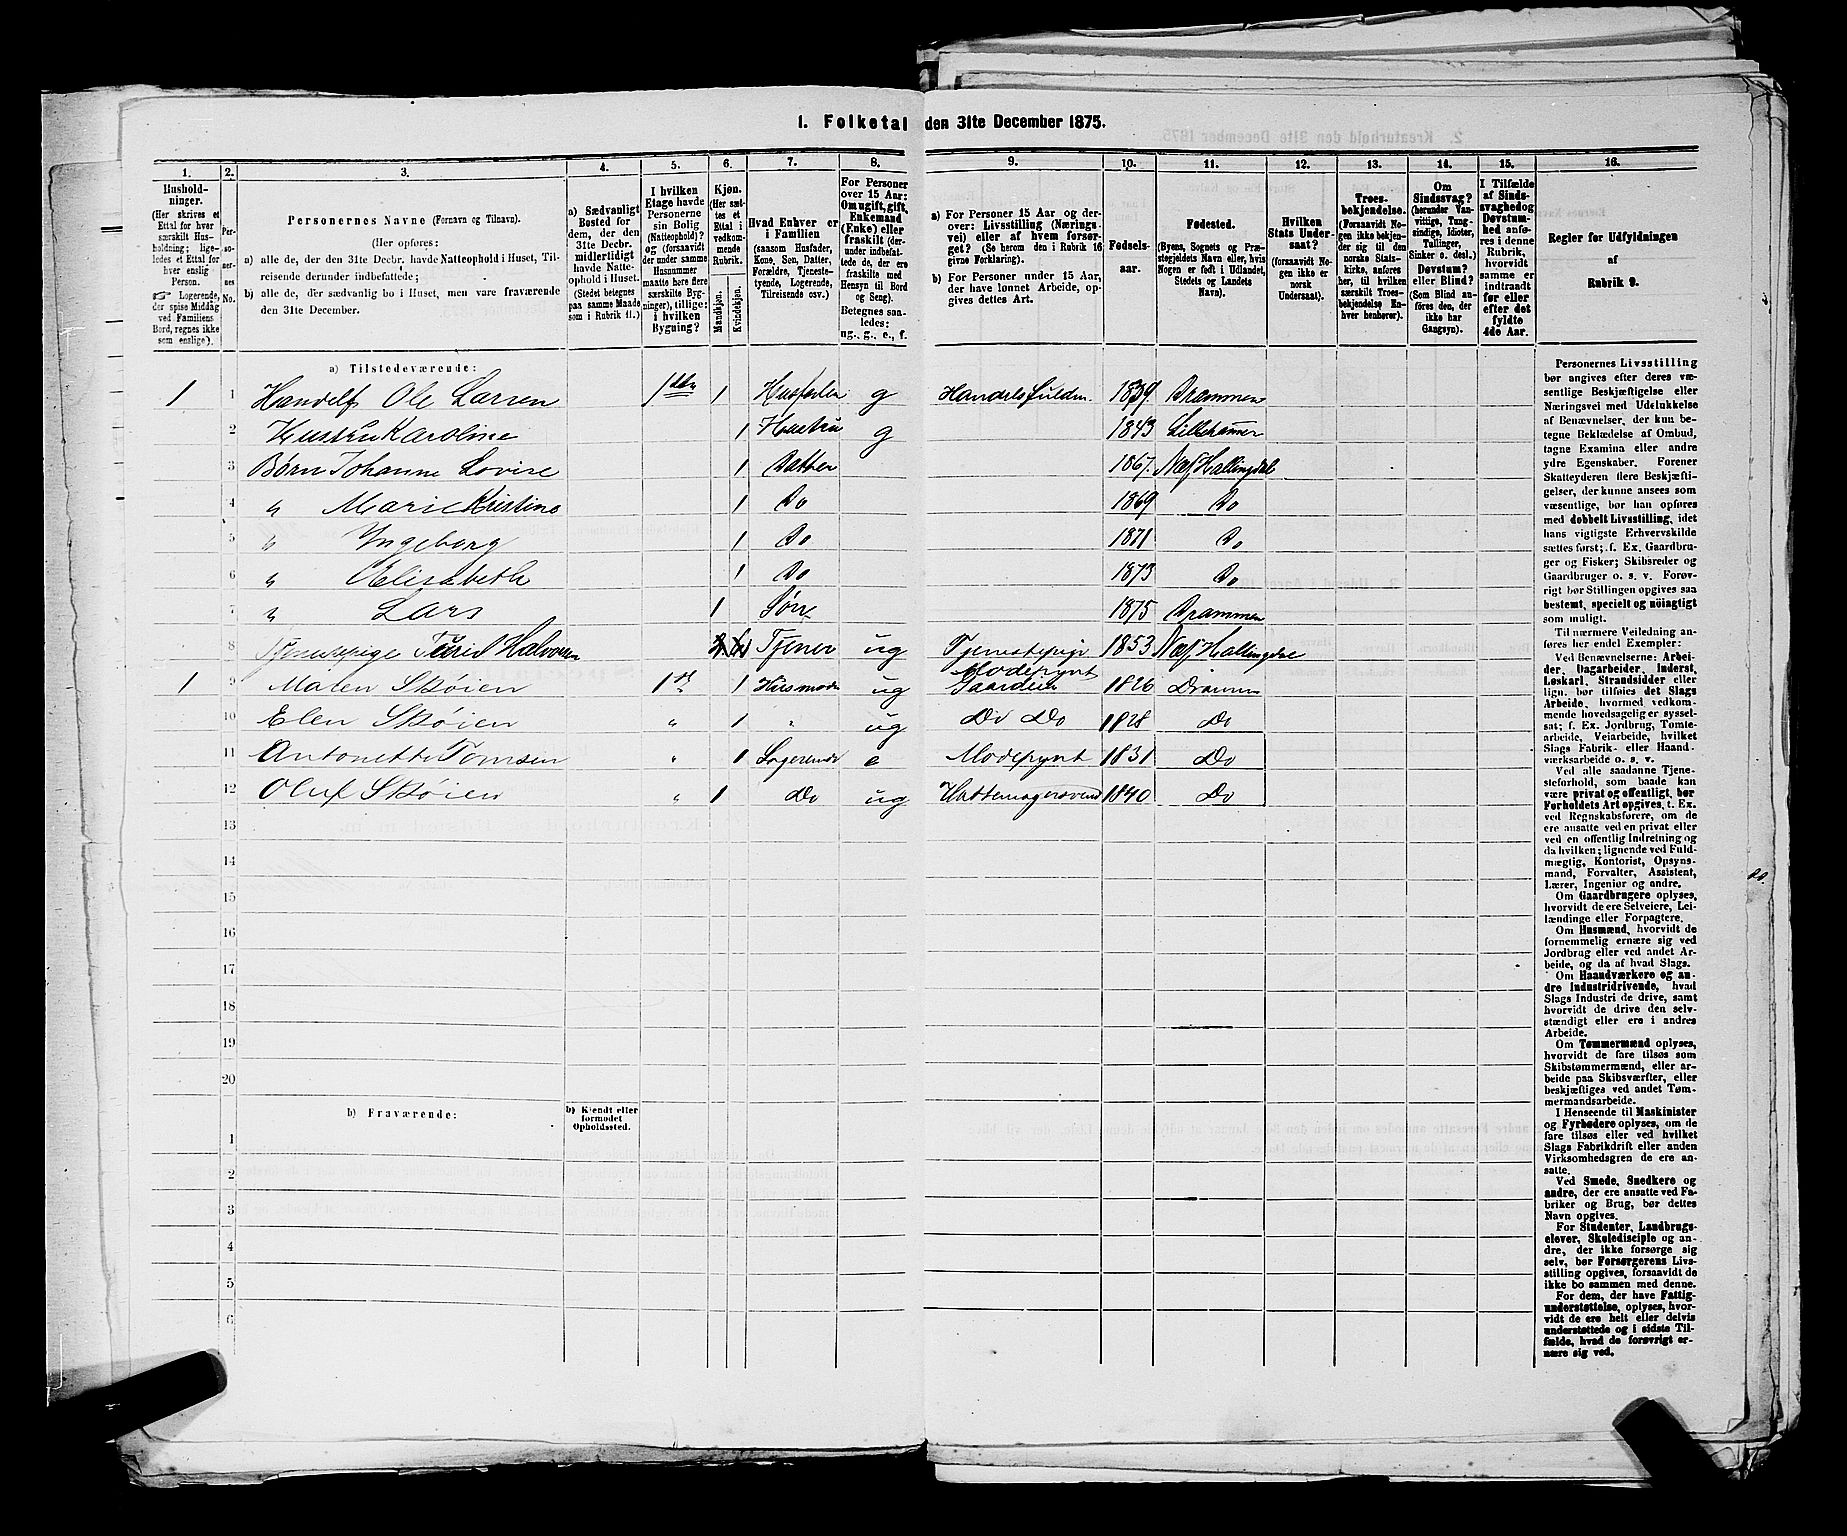 1. Folketal den 31te December 1875.
1. 2. 3. 4. 5. 6. 7. 8. 9. 10. 11. 12. 13. 14. 15. 16.
Hushold-
ninger.
(Her skrives et
Ettal for hver
særskilt Hus-
holdning; lige-
ledes et Ettal for
hver enslig
Person.
☞ Logerende,
der spise Middag
ved Familiens
Bord, regnes ikke
som enslige).
Per-
so-
ner-
nes
No.
Personernes Navne (Fornavn og Tilnavn).
(Her opføres:
a) alle de, der den 31te Decbr. havde Natteophold i Huset, Til-
reisende derunder indbefattede;
b) alle de, der sædvanlig bo i Huset, men vare fraværende
den 31te December.
a) Sædvanligt
Bosted for
dem, der den
31te Decbr.
midlertidigt
havde Natte-
ophold i Huset.
(Stedet betegnes
paa samme Maade
som i Rubrik 11.)
I hvilken
Etage havde
Personerne
sin Bolig
(Natteophold)?
og (forsaavidt
der under samme
Husnummer
maatte høre flere
særskilte Byg-
ninger), tillige:
i hvilken
Bygning?
Kjøn.
(Her sæt-
tes et
Ettal i
vedkom-
mende
Rubrik.
Mandkjøn.
Kvindekjøn.
Hvad Enhver er
i Familien
(saasom Husfader,
Kone, Søn, Datter,
Forældre, Tjeneste-
tyende, Logerende,
Tilreisende osv.)
For Personer
over 15 Aar:
Om ugift, gift,
Enkemand
(Enke) eller
fraskilt (der-
under indbefat-
tede de, der ere
fraskilte med
Hensyn til Bord
og Seng).
Betegnes saa-
ledes:
ug., g., e., f.
a) For Personer 15 Aar og der-
over: Livsstilling (Nærings-
vei) eller af hvem forsør-
get? (Se herom den i Rubrik 16
givne Forklaring).
b) For Personer under 15 Aar,
der have lønnet Arbeide, op-
gives dettes Art.
Fødsels-
aar.
Fødested.
(Byens, Sognets og Præ-
stegjeldets Navn eller, hvis
Nogen er født i Udlandet,
Stedets og Landets
Navn).
Hvilken
Stats Under-
saat?
(forsaavidt No-
gen ikke er
norsk
Undersaat).
Troes-
bekjendelse.
(Forsaavidt No-
gen ikke bekjen-
der sig til den
norske Stats-
kirke, anføres
her, til hvilken
særskilt Troes-
bekjendelse En-
hver henhører).
Om
Sindssvag?
(herunder Van-
vittige, Tung-
sindige, Idioter,
Tullinger,
Sinker o. desl.)
Døvstum?
eller Blind?
(Som Blind an-
føres den, der
ikke har
Gangsyn).
I Tilfælde
af Sinds-
svaghed og
Døvstum-
hed anfø-
res i denne
Rubrik,
hvorvidt
samme er
indtraadt
før eller
efter det
fyldte
4de Aar.
Regler for Udfyldningen
af
Rubrik 9.
a) Tilstedeværende:
1 1 Ole Larsen 1 g 1839 Drammen
2 Hustru Karoline 1 Hustru g 1843 Lillehamer
3 Børn Johanne Lovise 1 Datter 1867. Næs Hallingdal
4 " Marie Kristine 1 Do 1869 Do
5 " Ingeborg 1 Do 1871 Do
6 " Elisabeth 1 Do 1873 Do
7 " Lars 1 Sön 1875 Drammen
8 Tjenestepige Turid Halvorsen Tjener ug Tjenestepige 1853 Næs Hallingdal
Modepynt
1 9 Maren Skøien 1 1 ug 1826 Drammen
10 Elen Skøien " 1 " ug Do Do 1828 Do
11 Antonette Tomsen " 1 Logerende e Modepynt 1831 Do
12 Oluf Skøien " 1 Do ug Hattemagersvend 1840 Do
13
14
15
16
17
18
19
20
b) Fraværende:
b) Kjendt eller
formodet
Opholdssted.
1
2
3
4
5
6
Personernes Livsstilling
bør angives efter deres væ-
sentlige Beskjæftigelse eller
Næringsvei med Udelukkelse
af Benævnelser, der kun be-
tegne Beklædelse af Ombud,
tagne Examina eller andre
ydre Egenskaber. Forener
Skatteyderen flere Beskjæfti-
gelser, der kunne ansees som
væsentlige, bør han opføres
med dobbelt Livsstilling, idet
hans vigtigste Erhvervskilde
sættes først; f. Ex. Gaardbru-
ger og Fisker; Skibsreder og
Gaardbruger o. s. v. Forøv-
rigt bør Stillingen opgives saa
bestemt, specielt og nöiagtigt
som muligt.
Til nærmere Veiledning an-
føres her endel Exempler:
Ved Benævnelserne: Arbei-
der, Dagarbeider, Inderst,
Løskarl, Strandsidder eller
lign. bør tilføies det Slags
Arbeide, hvormed vedkom-
mende hovedsagelig er syssel-
sat; f. Ex. Jordbrug, Tomte-
arbeide, Veiarbeide, hvilket
Slags Fabrik- eller Haand-
værksarbeide o. s. v.
Ved alle saadanne Tjene-
steforhold, som baade kan
være privat og offentligt, bør
Forholdets Art opgives, t. Ex.
ved Regnskabsførere, om de
ere ansatte ved en privat eller
ved en offentlig Indretning og
da hvilken; lignende ved Fuld-
mægtig, Kontorist, Opsyns-
mand, Forvalter, Assistent,
Lærer, Ingeniør og andre.
Om Gaardbrugere oplyses,
hvorvidt de ere Selveiere, Lei-
lændinge eller Forpagtere.
Om Husmænd, hvorvidt de
fornemmelig ernære sig ved
Jordbrug eller ved andet Ar-
beide, og da af hvad Slags.
Om Haandværkere og an-
dre Industridrivende, hvad
Slags Industri de drive, samt
hvorvidt de drive den selv-
stændigt eller ere i andres
Arbeide.
Om Tømmermænd oplyses,
hvorvidt de fare tilsøs som
Skibstømmermænd, eller ar-
beide paa Skibsværfter, eller
beskjæftiges ved andet Tøm-
mermandsarbeide.
I Henseende til Maskinister
og Fyrbødere oplyses, om de
fare tilsøs eller ved hvilket
Slags Fabrikdrift eller anden
Virksomhedsgren de ere an-
satte.
Ved Smede, Snedkere og
andre, der ere ansatte ved Fa-
briker og Brug, bør dettes
Navn opgives.
For Studenter, Landbrugs-
elever, Skoledisciple og an-
dre, der ikke forsørge sig
selv, bør Forsørgerens Livs-
stilling opgives, forsaavidt de
ikke bo sammen med denne.
For dem, der have Fattig-
understøttelse, oplyses, hvor-
vidt de ere helt eller delvis
understøttede og i sidste Til-
fælde, hvad de forøvrigt er-
nære sig ved.